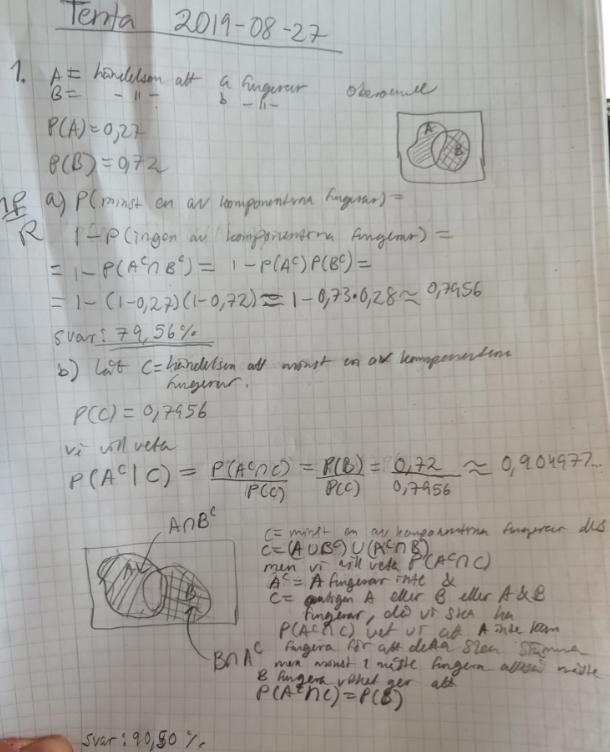 Tenta 2019-08-27
1. A = händelsen att a fungerar oberoende
B = -"- b -"-
P(A)=0,27
P(B)=0,72
A B
a) P(minst en av komponenterna fungerar) =
R 1-P(ingen av komponenterna fungerar) =
= 1-P(Aᶜ∩Bᶜ) = 1-P(Aᶜ)P(Bᶜ) =
= 1-(1-0,27)(1-0,72) = 1-0,73·0,28 ≈ 0,7956
svar: 79,56%
b) låt C = händelsen att minst en av komponenterna
fungerar.
P(C) = 0,7956
vi vill veta
P(Aᶜ|C) = P(Aᶜ∩C)/P(C) = P(B)/P(C) = 0,72/0,7956 ≈ 0,904977...
A∩Bᶜ
A B
B∩Aᶜ
C = minst en av komponenterna fungerar dvs
C = (A∪Bᶜ)∪(Aᶜ∩B)
men vi vill veta P(Aᶜ∩C)
Aᶜ = A fungerar inte &
C = antigen A eller B eller A & B
fungerar, då vi ska ha
P(Aᶜ∩C) vet vi att A inte kan
fungera för att detta ska stämma
men minst 1 måste fungera alltså måste
B fungera vilket ger att
P(Aᶜ∩C) = P(B)
svar: 90,50 %.